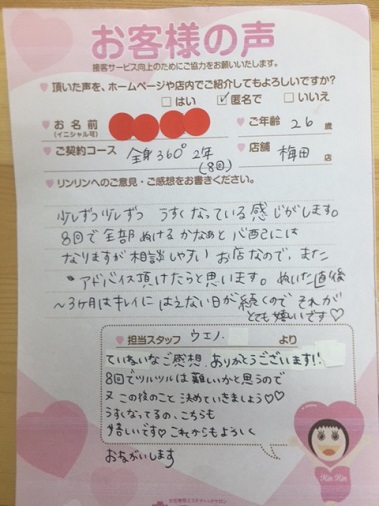 お客様の声
接客サービス向上のためにご協力をお願いいたします。
頂いた声を、ホームページや店内でご紹介してもよろしいですか?
□はい ☑匿名で □いいえ
お名前 (イニシャル可) ご年齢 26 歳
ご契約コース 全身360° 2年 (8回) 店舗 梅田 店
リンリンへのご意見・ご感想をお書きください。
少しずつ少しずつ うすくなっている感じがします。
8回で全部ぬけるかなぁと心配には
なりますが相談しやすいお店なので、また
アドバイス頂けたらと思います。ぬいた直後
〜3ヶ月はキレイにはえない日が続くのでそれが
とても嬉しいです♡
担当スタッフ ウエノ より
ていねいなご感想、ありがとうございます!
8回でツルツルは難しいかと思うので
又この後のこと決めていきましょう♡♡
うすくなってるの、こちらも
嬉しいです♡これからもよろしく
おねがいします
Rin Rin